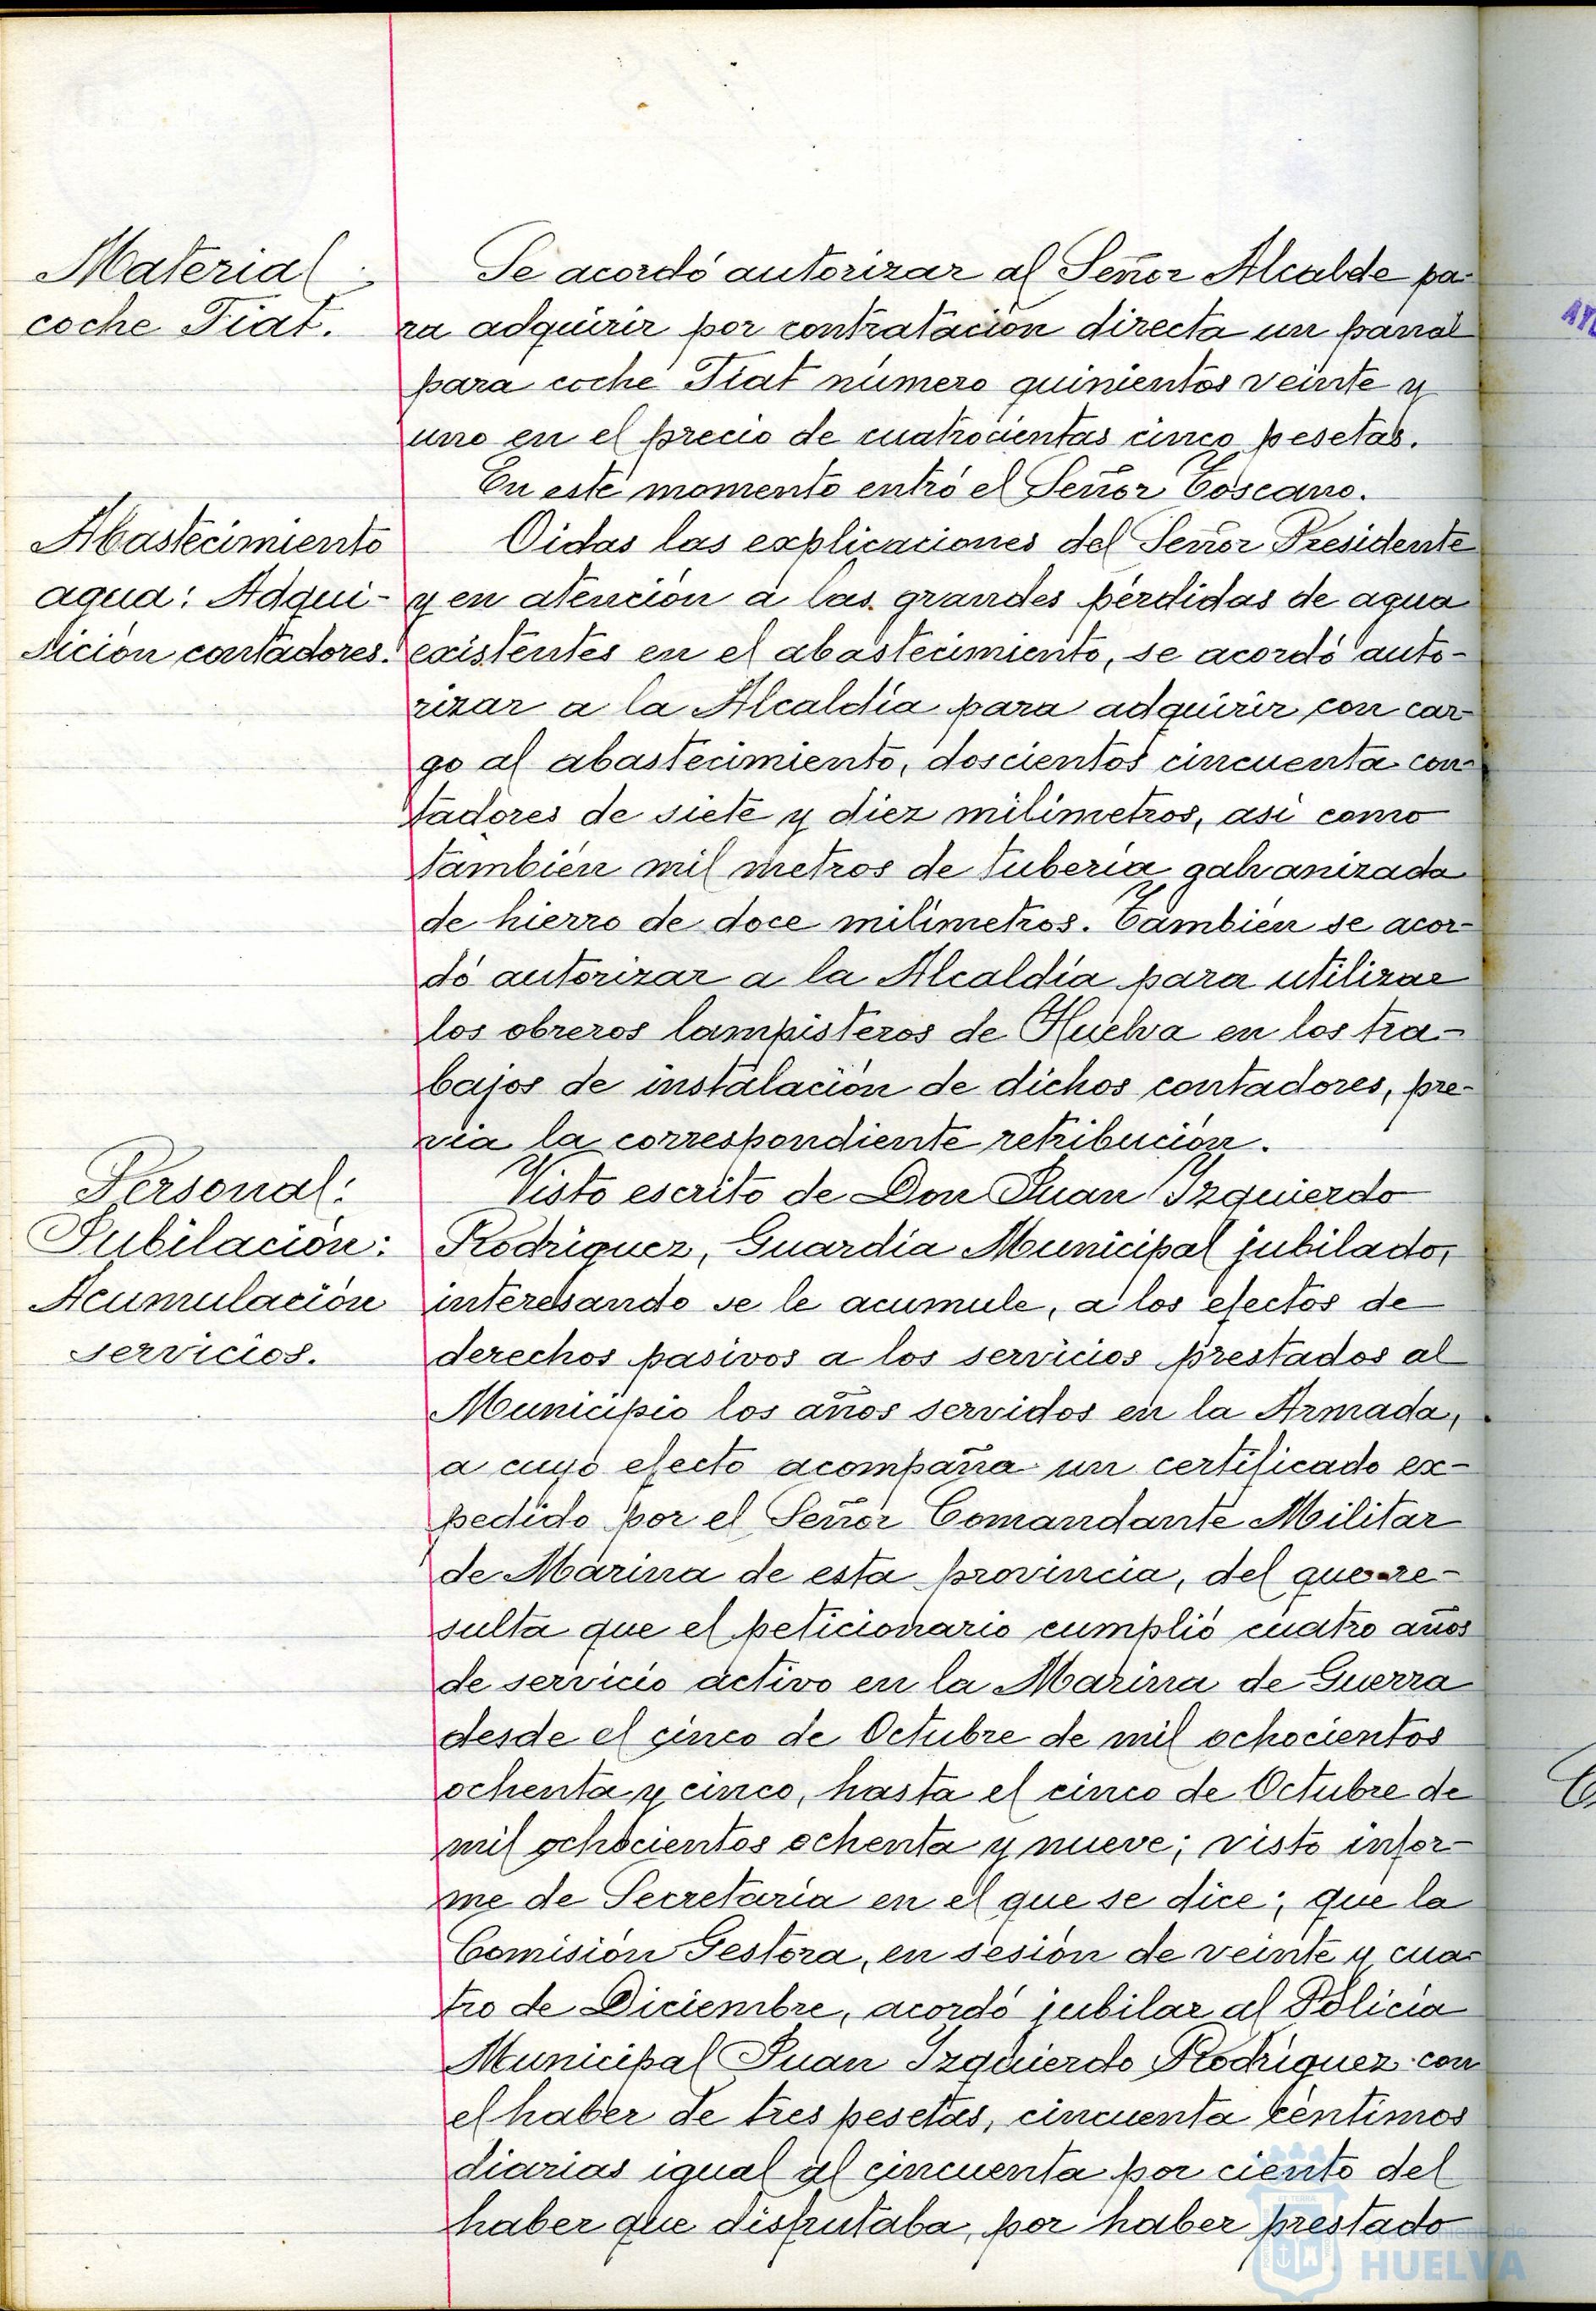 Material:
coche Fiat.
Se acordó autorizar al Señor Alcalde pa-
ra adquirir por contratación directa un panal
para coche Fiat número quinientos veinte y
uno en el precio de cuatrocientas cinco pesetas.
En este momento entró el Señor Toscano.
Abastecimiento
agua: Adqui-
sición contadores.
Oidas las explicaciones del Señor Presidente
y en atención a las grandes pérdidas de agua
existentes en el abastecimiento, se acordó auto-
rizar a la Alcaldía para adquirir con car-
go al abastecimiento, doscientos cincuenta con-
tadores de siete y diez milímetros, así como
también mil metros de tubería galvanizada
de hierro de doce milímetros. También se acor-
dó autorizar a la Alcaldía para utilizar
los obreros lampisteros de Huelva en los tra-
bajos de instalación de dichos contadores, pre-
via la correspondiente retribución.
Personal:
Jubilación:
Acumulación
servicios.
Visto escrito de Don Juan Izquierdo
Rodríguez, Guardia Municipal jubilado,
interesando se le acumule, a los efectos de
derechos pasivos a los servicios prestados al
Municipio los años servidos en la Armada,
a cuyo efecto acompaña un certificado ex-
pedido por el Señor Comandante Militar
de Marina de esta provincia, del que re-
sulta que el peticionario cumplió cuatro años
de servicio activo en la Marina de Guerra
desde el cinco de Octubre de mil ochocientos
ochenta y cinco, hasta el cinco de Octubre de
mil ochocientos ochenta y nueve; visto infor-
me de Secretaría en el que se dice; que la
Comisión Gestora, en sesión de veinte y cua-
tro de Diciembre, acordó jubilar al Policía
Municipal Juan Izquierdo Rodríguez con
el haber de tres pesetas, cincuenta céntimos
diarias igual al cincuenta por ciento del
haber que disfrutaba, por haber prestado
HUELVA